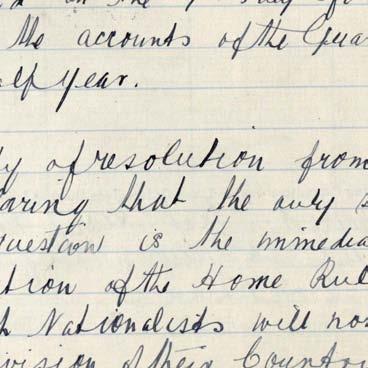 on the
the accounts of the Gua
alf year.
y of resolution from
aring that the only s
question is the immedia
tion of the Home Rul
h Nationalists will no
vision of their Countr